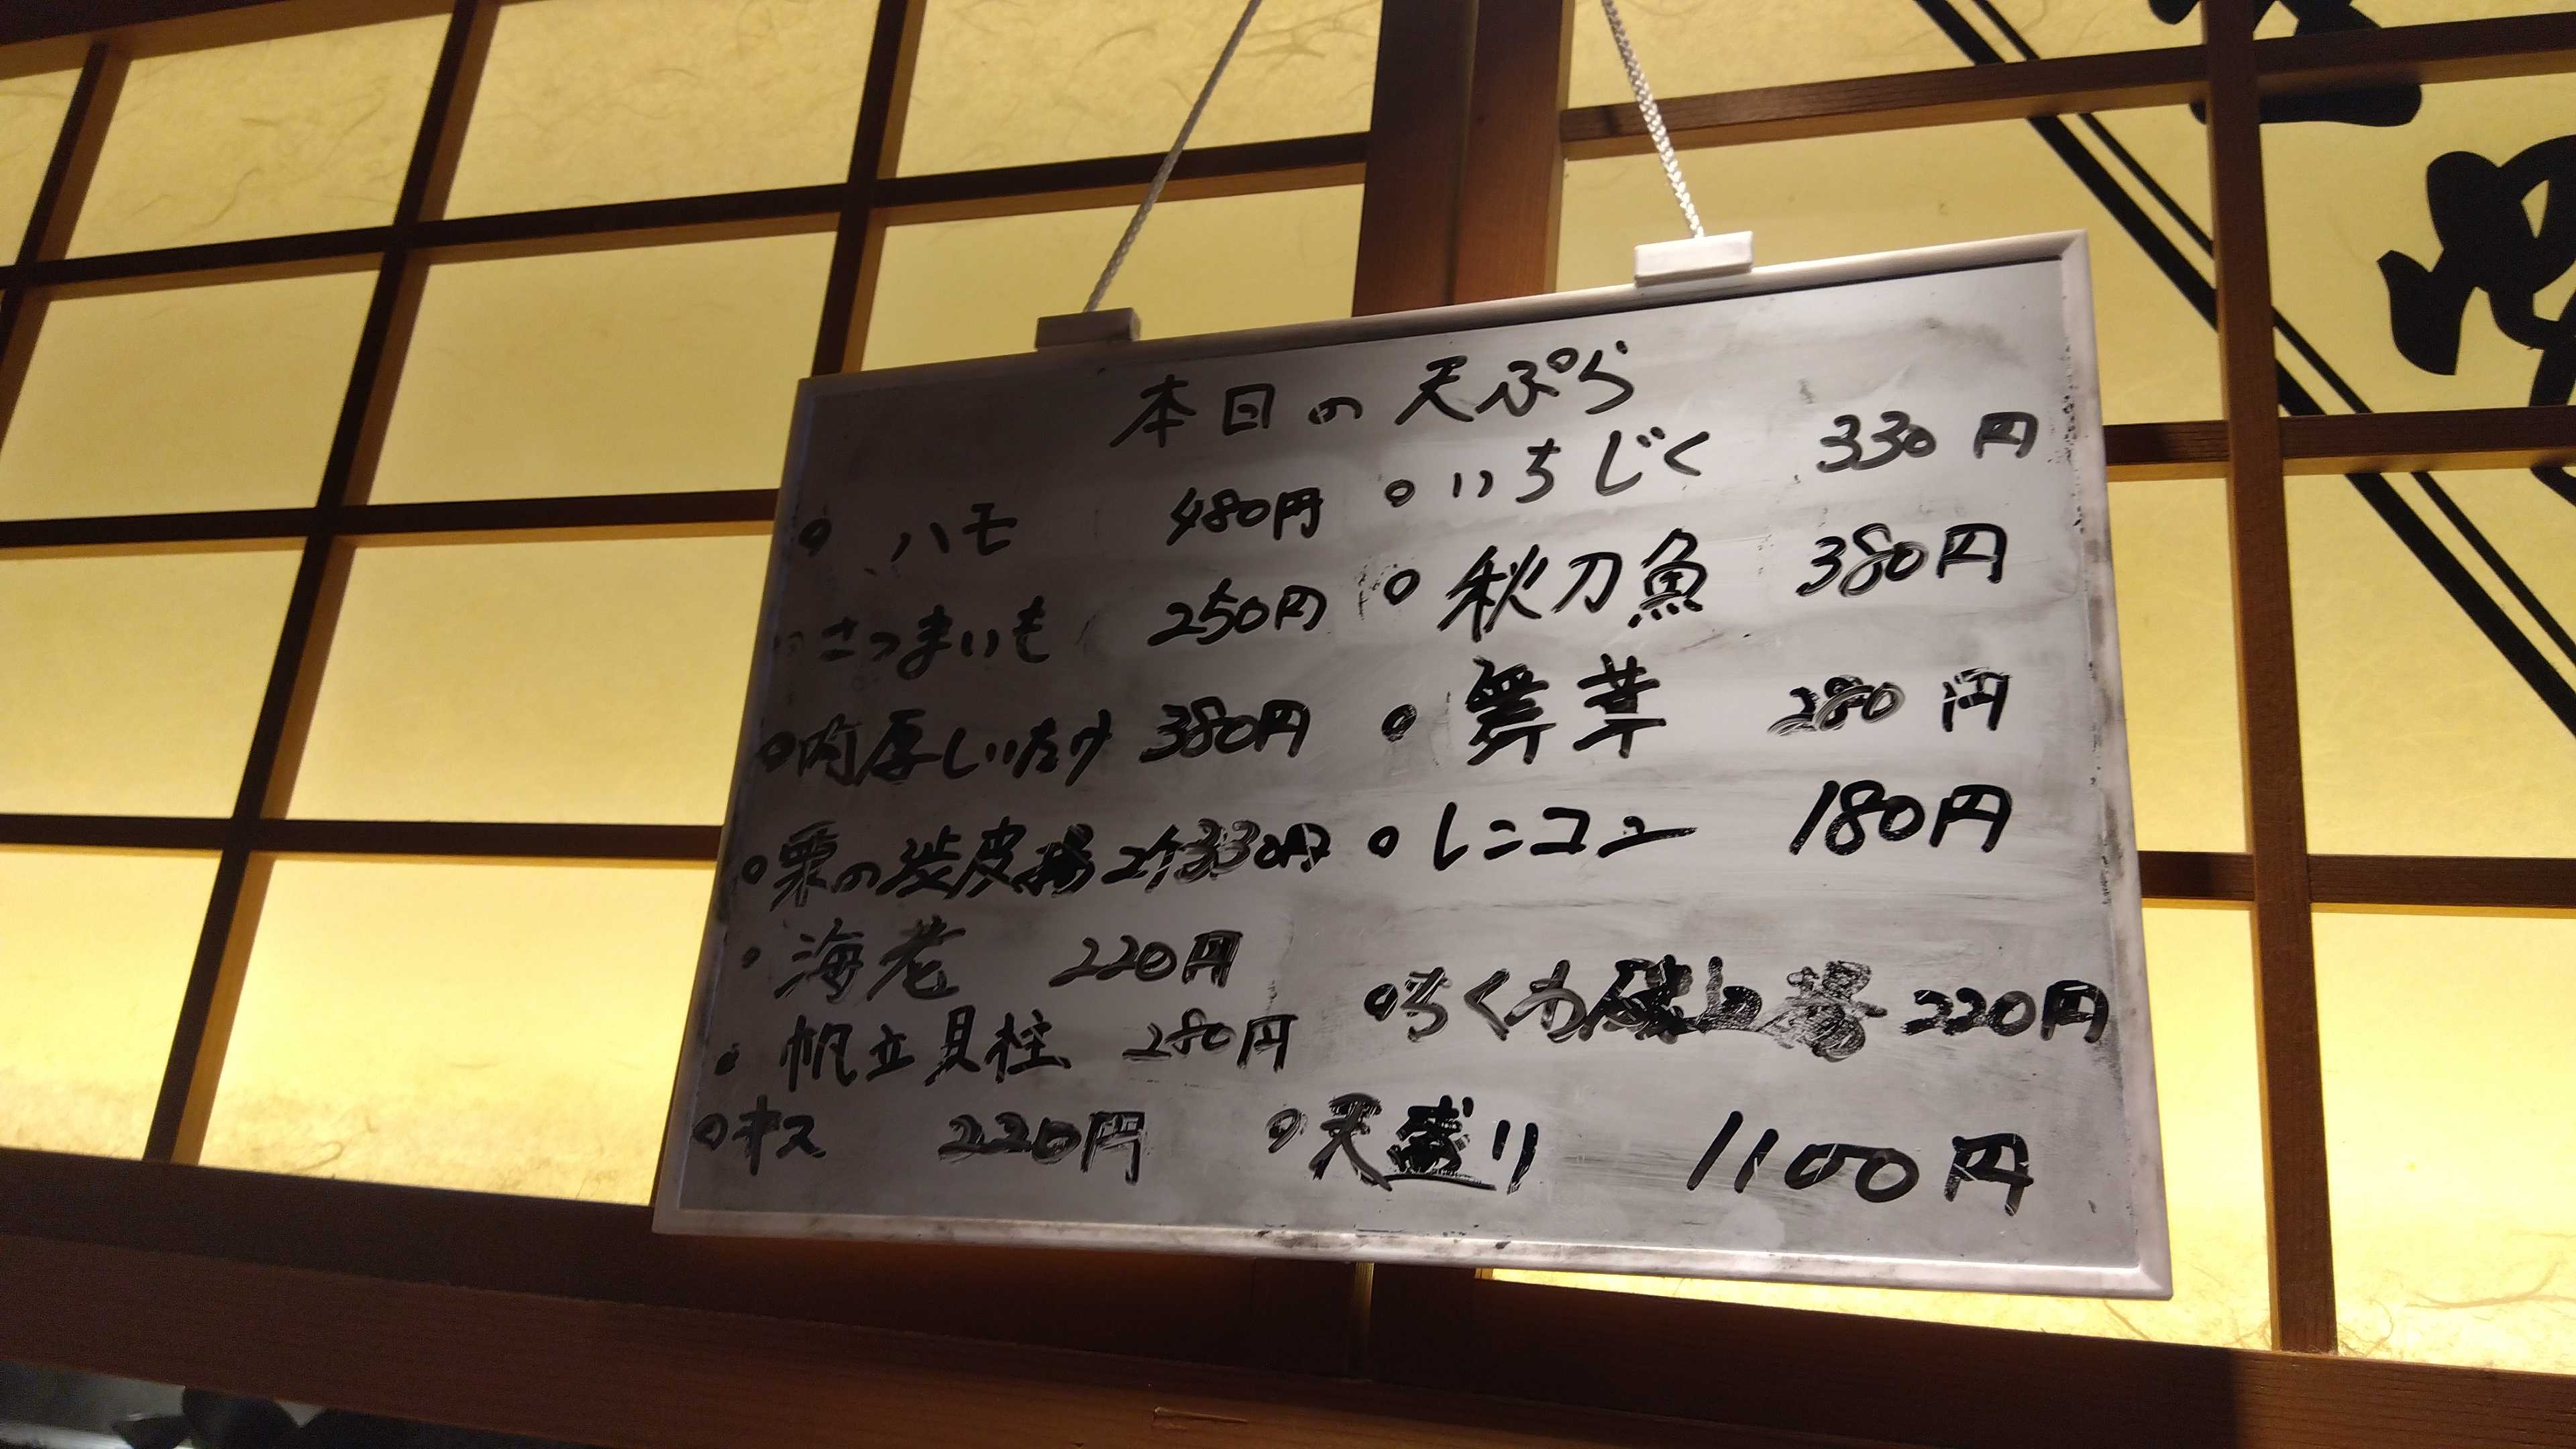 本日の天ぷら
・ハモ 480円
・さつまいも 250円
・肉厚しいたけ 380円
・栗の渋皮揚 2ケ330円
・海老 220円
・帆立貝柱 280円
・キス 220円
・いちじく 330円
・秋刀魚 380円
・舞茸 280円
・レンコン 180円
・ちくわ磯辺揚 220円
・天盛り 1100円